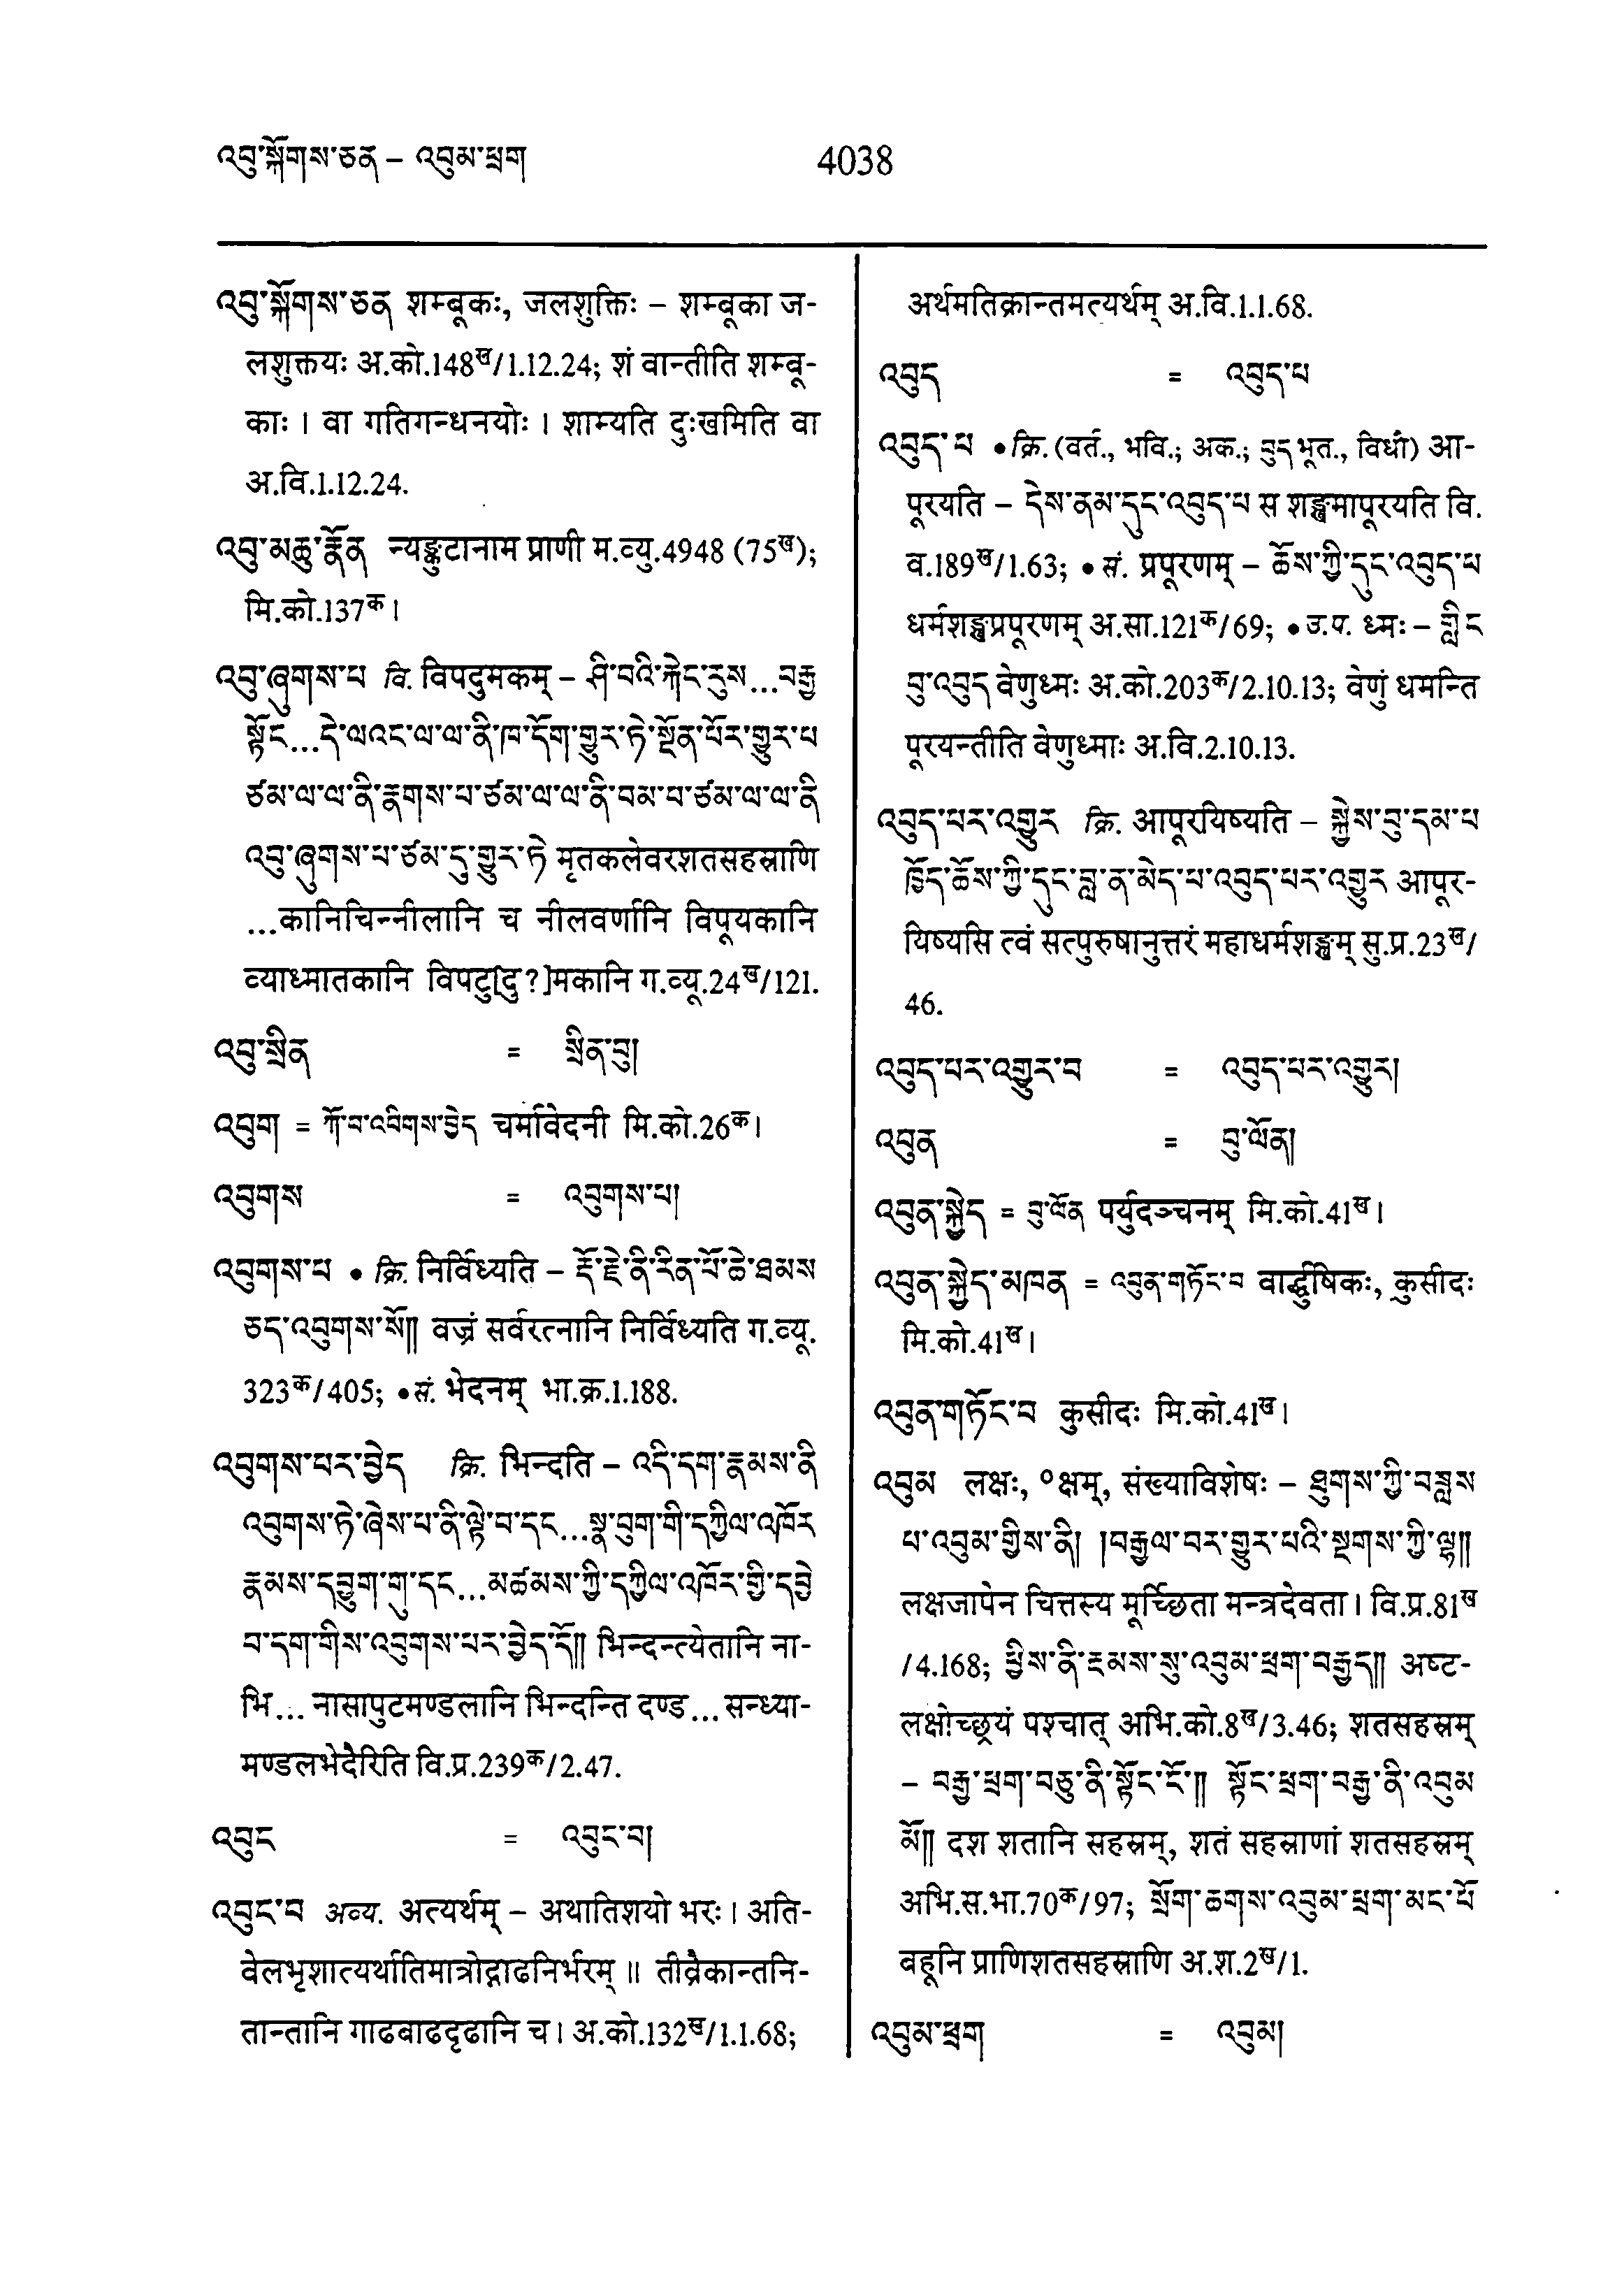 འབུ་སྐོགས་ཅན – འབུམ་ཕྲག
4038
འབུ་སྐོགས་ཅན शम्बूकः, जलशुक्तिः – शम्बूका ज-
लशुक्तयः अ.को.148ख/1.12.24; शं वान्तीति शम्बू-
काः । वा गतिगन्धनयोः । शाम्यति दुःखमिति वा
अ.वि.1.12.24.
འབུ་མཆུ་རྣོན न्यङ्कुटानाम प्राणी म.व्यु.4948 (75ख);
मि.को.137क ।
འབུ་ཞུགས་པ वि. विपदुमकम् – ཤི་བའི་ཀེང་རུས...བརྒྱ
སྟོང...དེ་ལའང་ལ་ལ་ནི་ཁ་དོག་གྱུར་ཏེ་སྔོན་པོར་གྱུར་པ
ཙམ་ལ་ལ་ནི་རྣགས་པ་ཙམ་ལ་ལ་ནི་བམ་པ་ཙམ་ལ་ལ་ནི
འབུ་ཞུགས་པ་ཙམ་དུ་གྱུར་ཏེ मृतकलेवरशतसहस्राणि
...कानिचिन्नीलानि च नीलवर्णानि विपूयकानि
व्याध्मातकानि विपटु[दु?]मकानि ग.व्यू.24ख/121.
འབུ་སྲིན = སྲིན་བུ།
འབུག = ཀོ་བ་འབིགས་བྱེད चर्मावेदनी मि.को.26क ।
འབུགས = འབུགས་པ།
འབུགས་པ • क्रि. निर्विध्यति – རྡོ་རྗེ་ནི་རིན་པོ་ཆེ་ཐམས
ཅད་འབུགས་སོ།། वज्रं सर्वरत्नानि निर्विध्यति ग.व्यू.
323क/405; • सं. भेदनम् भा.क्र.1.188.
འབུགས་པར་བྱེད क्रि. भिन्दति – འདི་དག་རྣམས་ནི
འབུགས་ཏེ་ཞེས་པ་ནི་ལྟེ་བ་དང...སྣ་བུག་གི་དཀྱིལ་འཁོར
རྣམས་དབྱུག་གུ་དང...མཚམས་ཀྱི་དཀྱིལ་འཁོར་གྱི་དབྱེ
བ་དག་གིས་འབུགས་པར་བྱེད་དོ།། भिन्दन्त्येतानि ना-
भि... नासापुटमण्डलानि भिन्दन्ति दण्ड... सन्ध्या-
मण्डलभेदैरिति वि.प्र.239क/2.47.
འབུང = འབུང་བ།
འབུང་བ अव्य. अत्यर्थम् – अथातिशयो भरः । अति-
वेलभृशात्यर्थातिमात्रोद्गाढनिर्भरम् ॥ तीव्रैकान्तनि-
तान्तानि गाढबाढदृढानि च । अ.को.132ख/1.1.68;
अर्थमतिक्रान्तमत्यर्थम् अ.वि.1.1.68.
འབུད = འབུད་པ
འབུད་པ • क्रि. (वर्त., भवि.; अक.; བུད भूत., विधौ) आ-
पूरयति – དེས་ནམ་དུང་འབུད་པ स शङ्खमापूरयति वि.
व.189ख/1.63; • सं. प्रपूरणम् – ཆོས་ཀྱི་དུང་འབུད་པ
धर्मशङ्खप्रपूरणम् अ.सा.121क/69; • उ.प. ध्मः – གླིང
བུ་འབུད वेणुध्मः अ.को.203क/2.10.13; वेणुं धमन्ति
पूरयन्तीति वेणुध्माः अ.वि.2.10.13.
འབུད་པར་འགྱུར क्रि. आपूरयिष्यति – སྐྱེས་བུ་དམ་པ
ཁྱོད་ཆོས་ཀྱི་དུང་བླ་ན་མེད་པ་འབུད་པར་འགྱུར आपूर-
यिष्यसि त्वं सत्पुरुषानुत्तरं महाधर्मशङ्खम् सु.प्र.23ख/
46.
འབུད་པར་འགྱུར་བ = འབུད་པར་འགྱུར།
འབུན = བུ་ལོན།
འབུན་སྐྱེད = བུ་ལོན पर्युदञ्चनम् मि.को.41ख ।
འབུན་སྐྱེད་མཁན = འབུན་གཏོང་བ वार्द्धुषिकः, कुसीदः
मि.को.41ख ।
འབུན་གཏོང་བ कुसीदः मि.को.41ख ।
འབུམ लक्षः, ०क्षम्, संख्याविशेषः – ཐུགས་ཀྱི་བཟླས
པ་འབུམ་གྱིས་ནི། །བརྒྱལ་བར་གྱུར་པའི་སྔགས་ཀྱི་ལྷ།།
लक्षजापेन चित्तस्य मूर्च्छिता मन्त्रदेवता । वि.प्र.81ख
/4.168; ཕྱིས་ནི་རྔམས་སུ་འབུམ་ཕྲག་བརྒྱད།། अष्ट-
लक्षोच्छ्रयं पश्चात् अभि.को.8ख/3.46; शतसहस्रम्
– བརྒྱ་ཕྲག་བཅུ་ནི་སྟོང་ངོ་།། སྟོང་ཕྲག་བརྒྱ་ནི་འབུམ
མོ།། दश शतानि सहस्रम्, शतं सहस्राणां शतसहस्रम्
अभि.स.भा.70क/97; སྲོག་ཆགས་འབུམ་ཕྲག་མང་པོ
बहूनि प्राणिशतसहस्राणि अ.श.2ख/1.
འབུམ་ཕྲག = འབུམ།